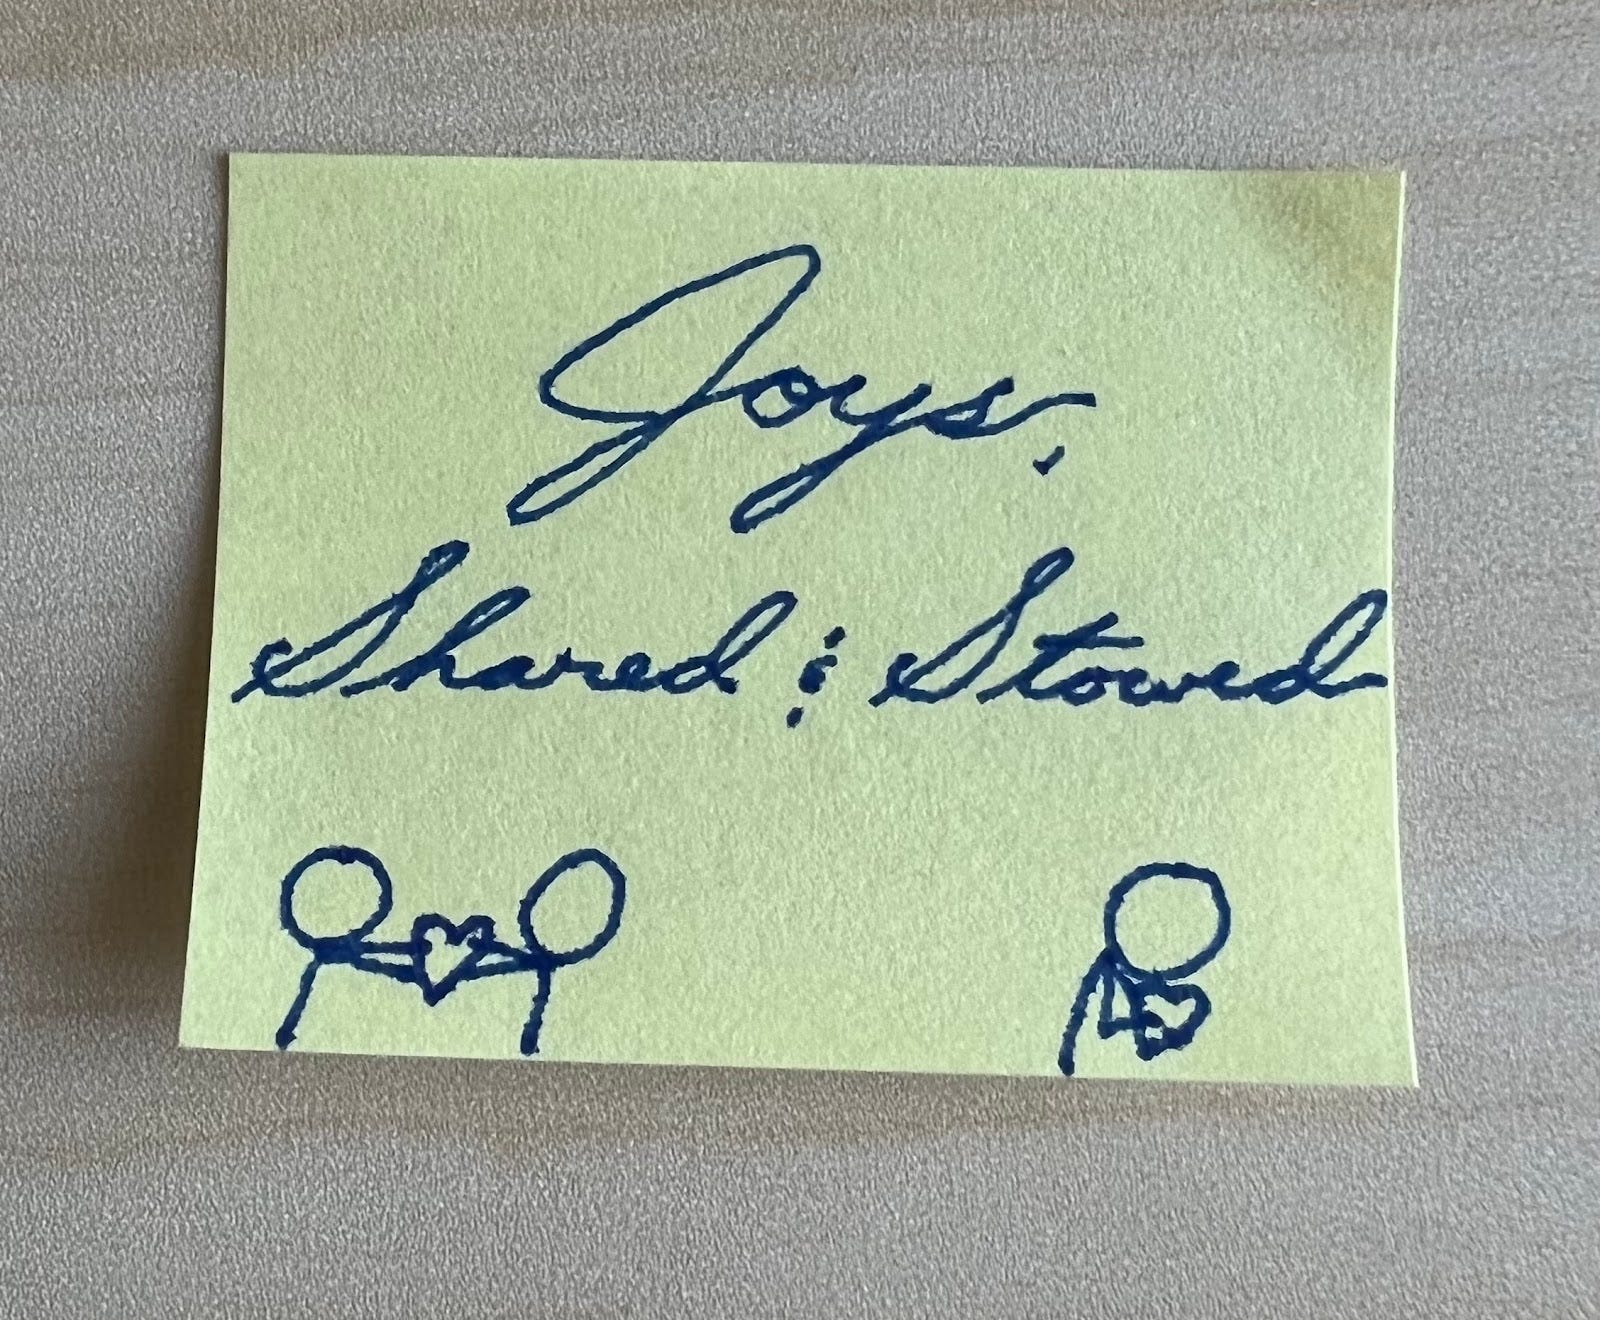 Joys.
Shared & Stowed